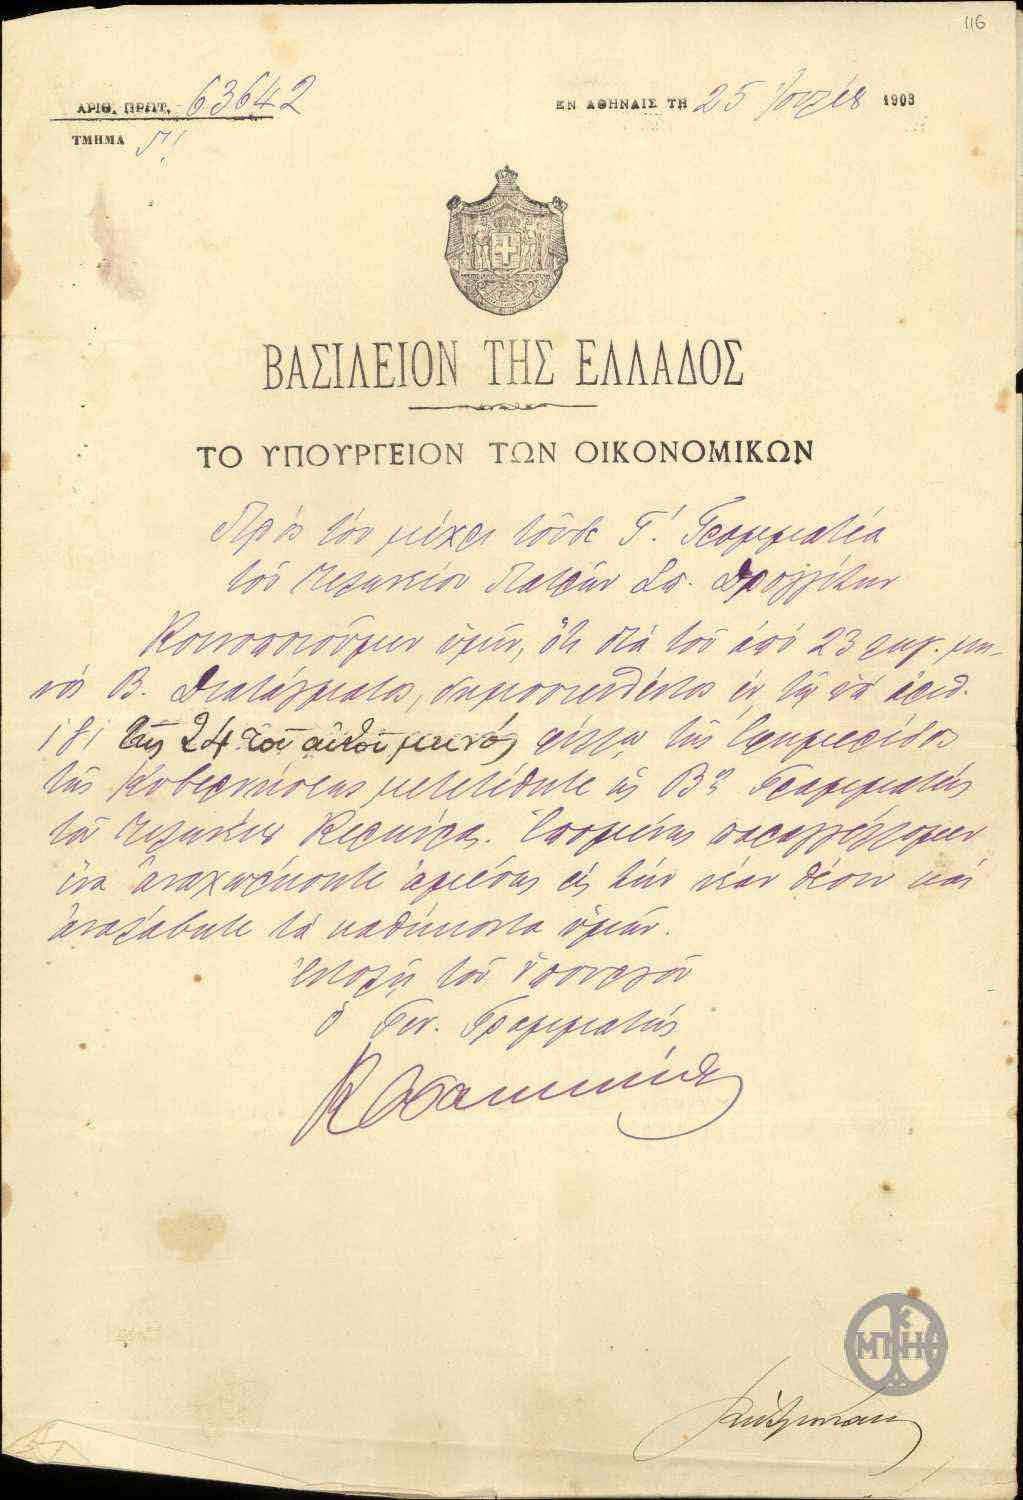 116
ΑΡΙΘ. ΠΡΩΤ. 63642
ΕΝ ΑΘΗΝΑΙΣ ΤΗ 25 Ἰουλίου 1903
ΤΜΗΜΑ
ΒΑΣΙΛΕΙΟΝ ΤΗΣ ΕΛΛΑΔΟΣ
ΤΟ ΥΠΟΥΡΓΕΙΟΝ ΤΩΝ ΟΙΚΟΝΟΜΙΚΩΝ
Πρὸς τὸν μέχρι τοῦδε Γ΄. Γραμματέα
τοῦ Τελωνείου Πατρῶν Σπ.
Κοινοποιοῦμεν ὑμῖν, ὅτι διὰ τοῦ ἀπὸ 23 φθίν. μη-
νὸς Β. Διατάγματος, δημοσιευθέντος ἐν τῷ ὑπ' ἀριθ.
181 τῆς 24 τοῦ αὐτοῦ μηνός φύλλῳ τῆς Ἐφημερίδος
τῆς Κυβερνήσεως μετετέθητε ὡς Βος Γραμματεὺς
τοῦ Τελωνείου Κερκύρας. Ἑπομένως παραγγέλλομεν
ἵνα ἀναχωρήσητε ἀμέσως εἰς τὴν νέαν θέσιν καὶ
ἀναλάβητε τὰ καθήκοντα ὑμῶν.
Ἐντολῇ τοῦ Ὑπουργοῦ
Ὁ Γεν. Γραμματεὺς
ΜΠΚΗ